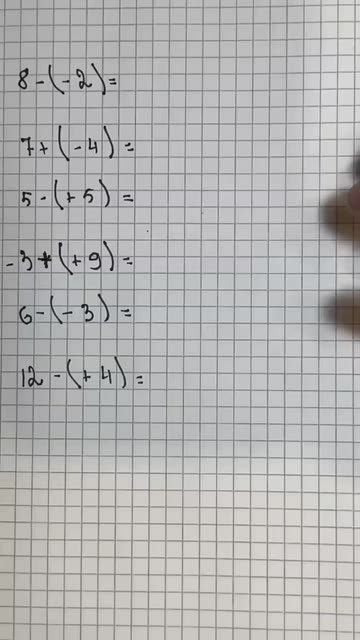 8-(-2)=
7+(-4)=
5-(+5)=
-3+(+9)=
6-(-3)=
12-(+4)=